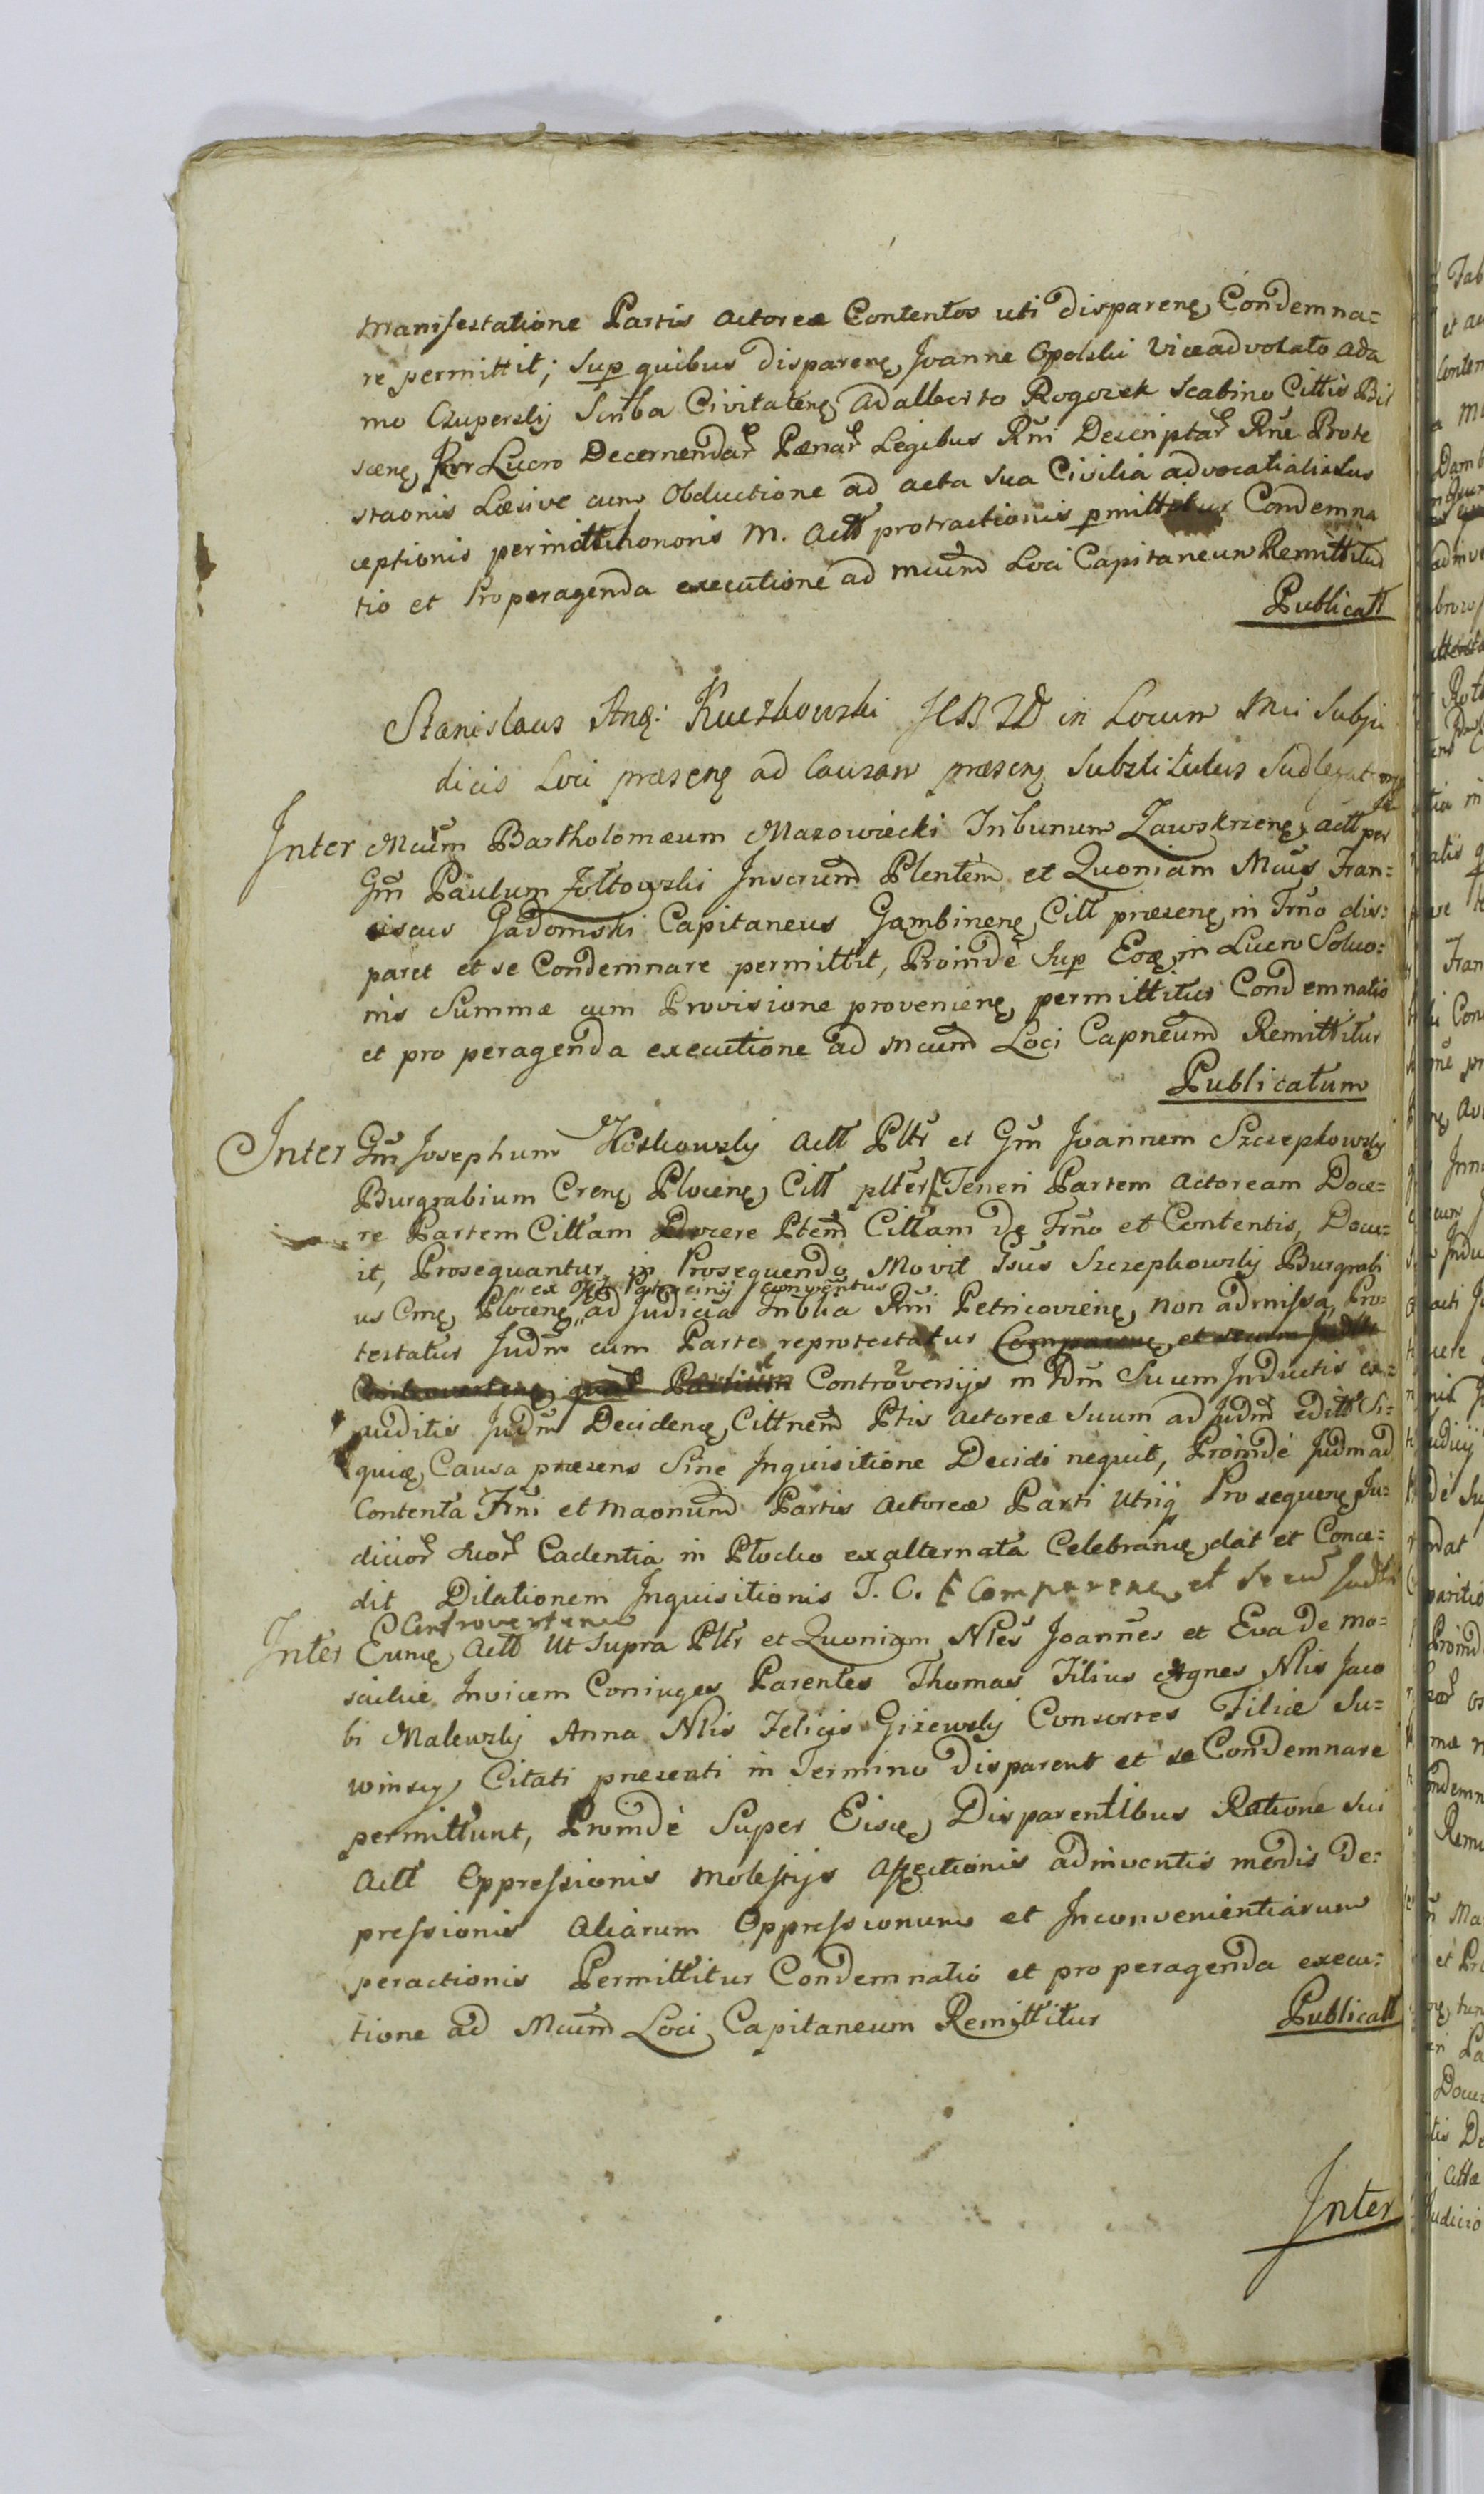 Manifestatione Partis Actoreæ Contentos uti disparenę, Condemna=
re permittit; Sup quibus disparenę, Joanne Opolski Viceadvocato Ada
mo Czuperskij Scriba Civitatenę Adalberto Rogozek Scabino Cittis Biel
scenę, Pro Lucro Decernendar Pænar Legibus Rni Descriptar Rne Prote
staonis Læsivæ cum Obductione ad acta sua Civilia advocatialia Sus
ceptionis honoris M. Actt protractionis pmittitur Condemna
tio et Pro peragenda executione ad Mcum Loci Capitaneum Remittitur
Publicatt
Stanislaus Kuczkowski JCBZD in Locum Mci Subju
dicis Loci præsenę ad Causam præsenę Substitutus Sudlegatus
Inter Mcum Bartholomæum Mazowiecki Tribunum Zawskrzenę, actt per
Gm Paulum Zołtowski Inscrum Plentem et Quoniam Mcus Fran=
ciscus Gadomski Capitaneus Gąmbinenę, Citt præsenę, in Trno dis=
paret et se Condemnare permittit, Proindè Sup Eoæ, in Lucro Soluo=
nis Summæ cum Provisione provenienę, permittitur Condemnatio
et pro peragenda executione ad Mcum Loci Capneum Remittitur
Publicatum
Inter Gm Josephum Hoskowskÿ Actt Pltr et Gm Joannem Szczepkowskÿ
Burgrabium Crenę Plocenę, Citt plter Teneri Partem Actoream Doce=
re Partem Cittam Docere Ptem Cittam de Trno et Contentis, Docu=
it, Prosequantur, in Prosequendo Movit Psus Szczepkowskÿ Burgrabi
ex Offo Patrocinij conventus
us Crnę, Plocenę, ad Judicia Triblia Rni Petricovienę, non admissa, Pro=
testatur Judm cum Parte reprotestatur Comparenę et secum Juditr
Controvertenę, Partium Controversijs in Jdm Suum Inductis ex=
auditis Judm Decidenę, Cittnem Ptis Actoreæ Suum ad Judm editt Si=
quię, Causa præsens Sine Inquisitione Decidi nequit, Proindè Judm ad
Contenta Trni et Maonum Partis Actoreæ Parti Utriq Prosequenę, Ju=
dicior suor Cadentia in Płocko ex alternata Celebranę, dat et Conce=
dit Dilationem Inquisitionis T. C. Comparenę et Secu Juditr
Controvertenę
Inter Eunę, Actt Ut Supra Pltr et Quoniam Nles Joannes et Eva de Mo=
scickie Invicem Coniuges Parentes Thomas Filius Agnes Nlis Jaco
bi Malewskÿ Anna Nlis Felicis Giżewskÿ Consortes Filiæ Su=
winscy Citati præsenti in Termino Disparent et se Condemnare
permittunt, Proindè Super Eisę, Disparentibus Ratione Sui
Actt Oppressionis Molestijs Affectionis adinventis modis De=
pressionis Aliarum Oppressionum et Inconvenientiarum
peractionis Permittitur Condemnatio et pro peragenda execu=
tione ad Mcum Loci Capitaneum Remittitur
Publicatt
Inter